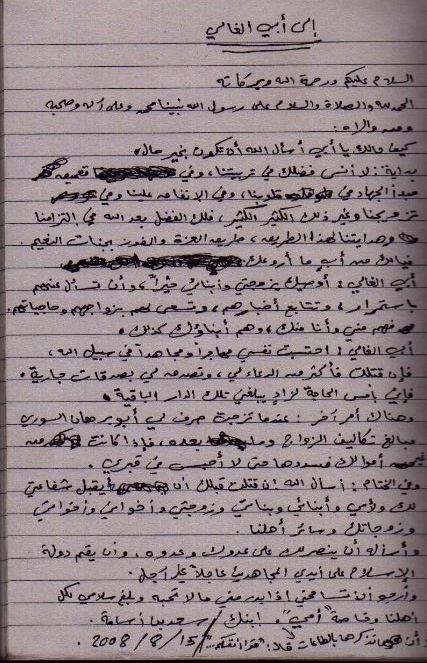 إلى أبي الغالي
السلام عليكم ورحمة الله وبركاته
الحمد لله والصلاة والسلام على رسول الله نبينا محمد وعلى آله وصحبه
ومن والاه :
كيف حالك يا أبي أسأل الله أن تكون بخير حال ،
بداية : لا أنسى فضلك في تربيتنا ، وفي تعميق
مبدأ الجهاد في قلوبنا ، وفي الإنفاق علينا وفي
تزويجنا وغير ذلك الكثير الكثير ، فلك الفضل بعد الله في التزامنا
وهدايتنا لهذا الطريق ، طريق العزة والفوز بجنات النعيم .
فيالك من أبٍ ما أروعك
أبي الغالي : أوصيك بزوجتي وأبنائي خيراً ، وأن تسأل عنهم
باستمرار ، وتتابع أخبارهم ، وتسعى لهم بزواجهم وحاجاتهم .
فهم مني وأنا منك ، وهم أبناؤك كذلك .
أبي الغالي : احتسبت نفسي مهاجراً ومجاهداً في سبيل الله ،
فإن قتلت فأكثر من الدعاء لي ، وتصدق لي بصدقات جارية ،
فإني بأمس الحاجة لزاد يبلغني تلك الدار الباقية .
وهناك أمر آخر : عندما تزوجت صرف لي أبو برهان السوري
مبالغ تكاليف الزواج وما بعده ، فإذا كانت من
أموالك فسددها حتى لا أحبس في قبري .
وفي الختام : أسأل الله إن قتلت قبلك أن يقبل شفاعتي
لك ولأمي وأبنائي وبناتي وزوجتي وأخواني وأخواتي
وزوجاتك وسائر أهلنا .
وأسأله أن ينصرك على عدوك وعدوه ، وأن يقيم دولة
الإسلام على أيدي المجاهدين عاجلاً غير آجل .
وأرجو أن تسامحني إذا بدر مني ما لا تحبه وبلغ سلامي لكل
أهلنا وخاصة "أمي" . ابنك / سعد بن أسامة .
2008 / 8 / 15